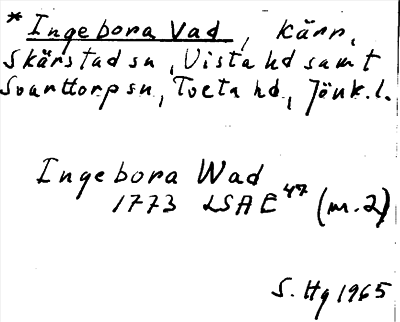 * Ingebora Vad, kärr,
Skärstad sn, Vista hd samt
Svarttorp sn, Tveta hd, Jönk.l.
Ingebora Wad
1773 LSAE 47 (m.2)
S. Hg 1965